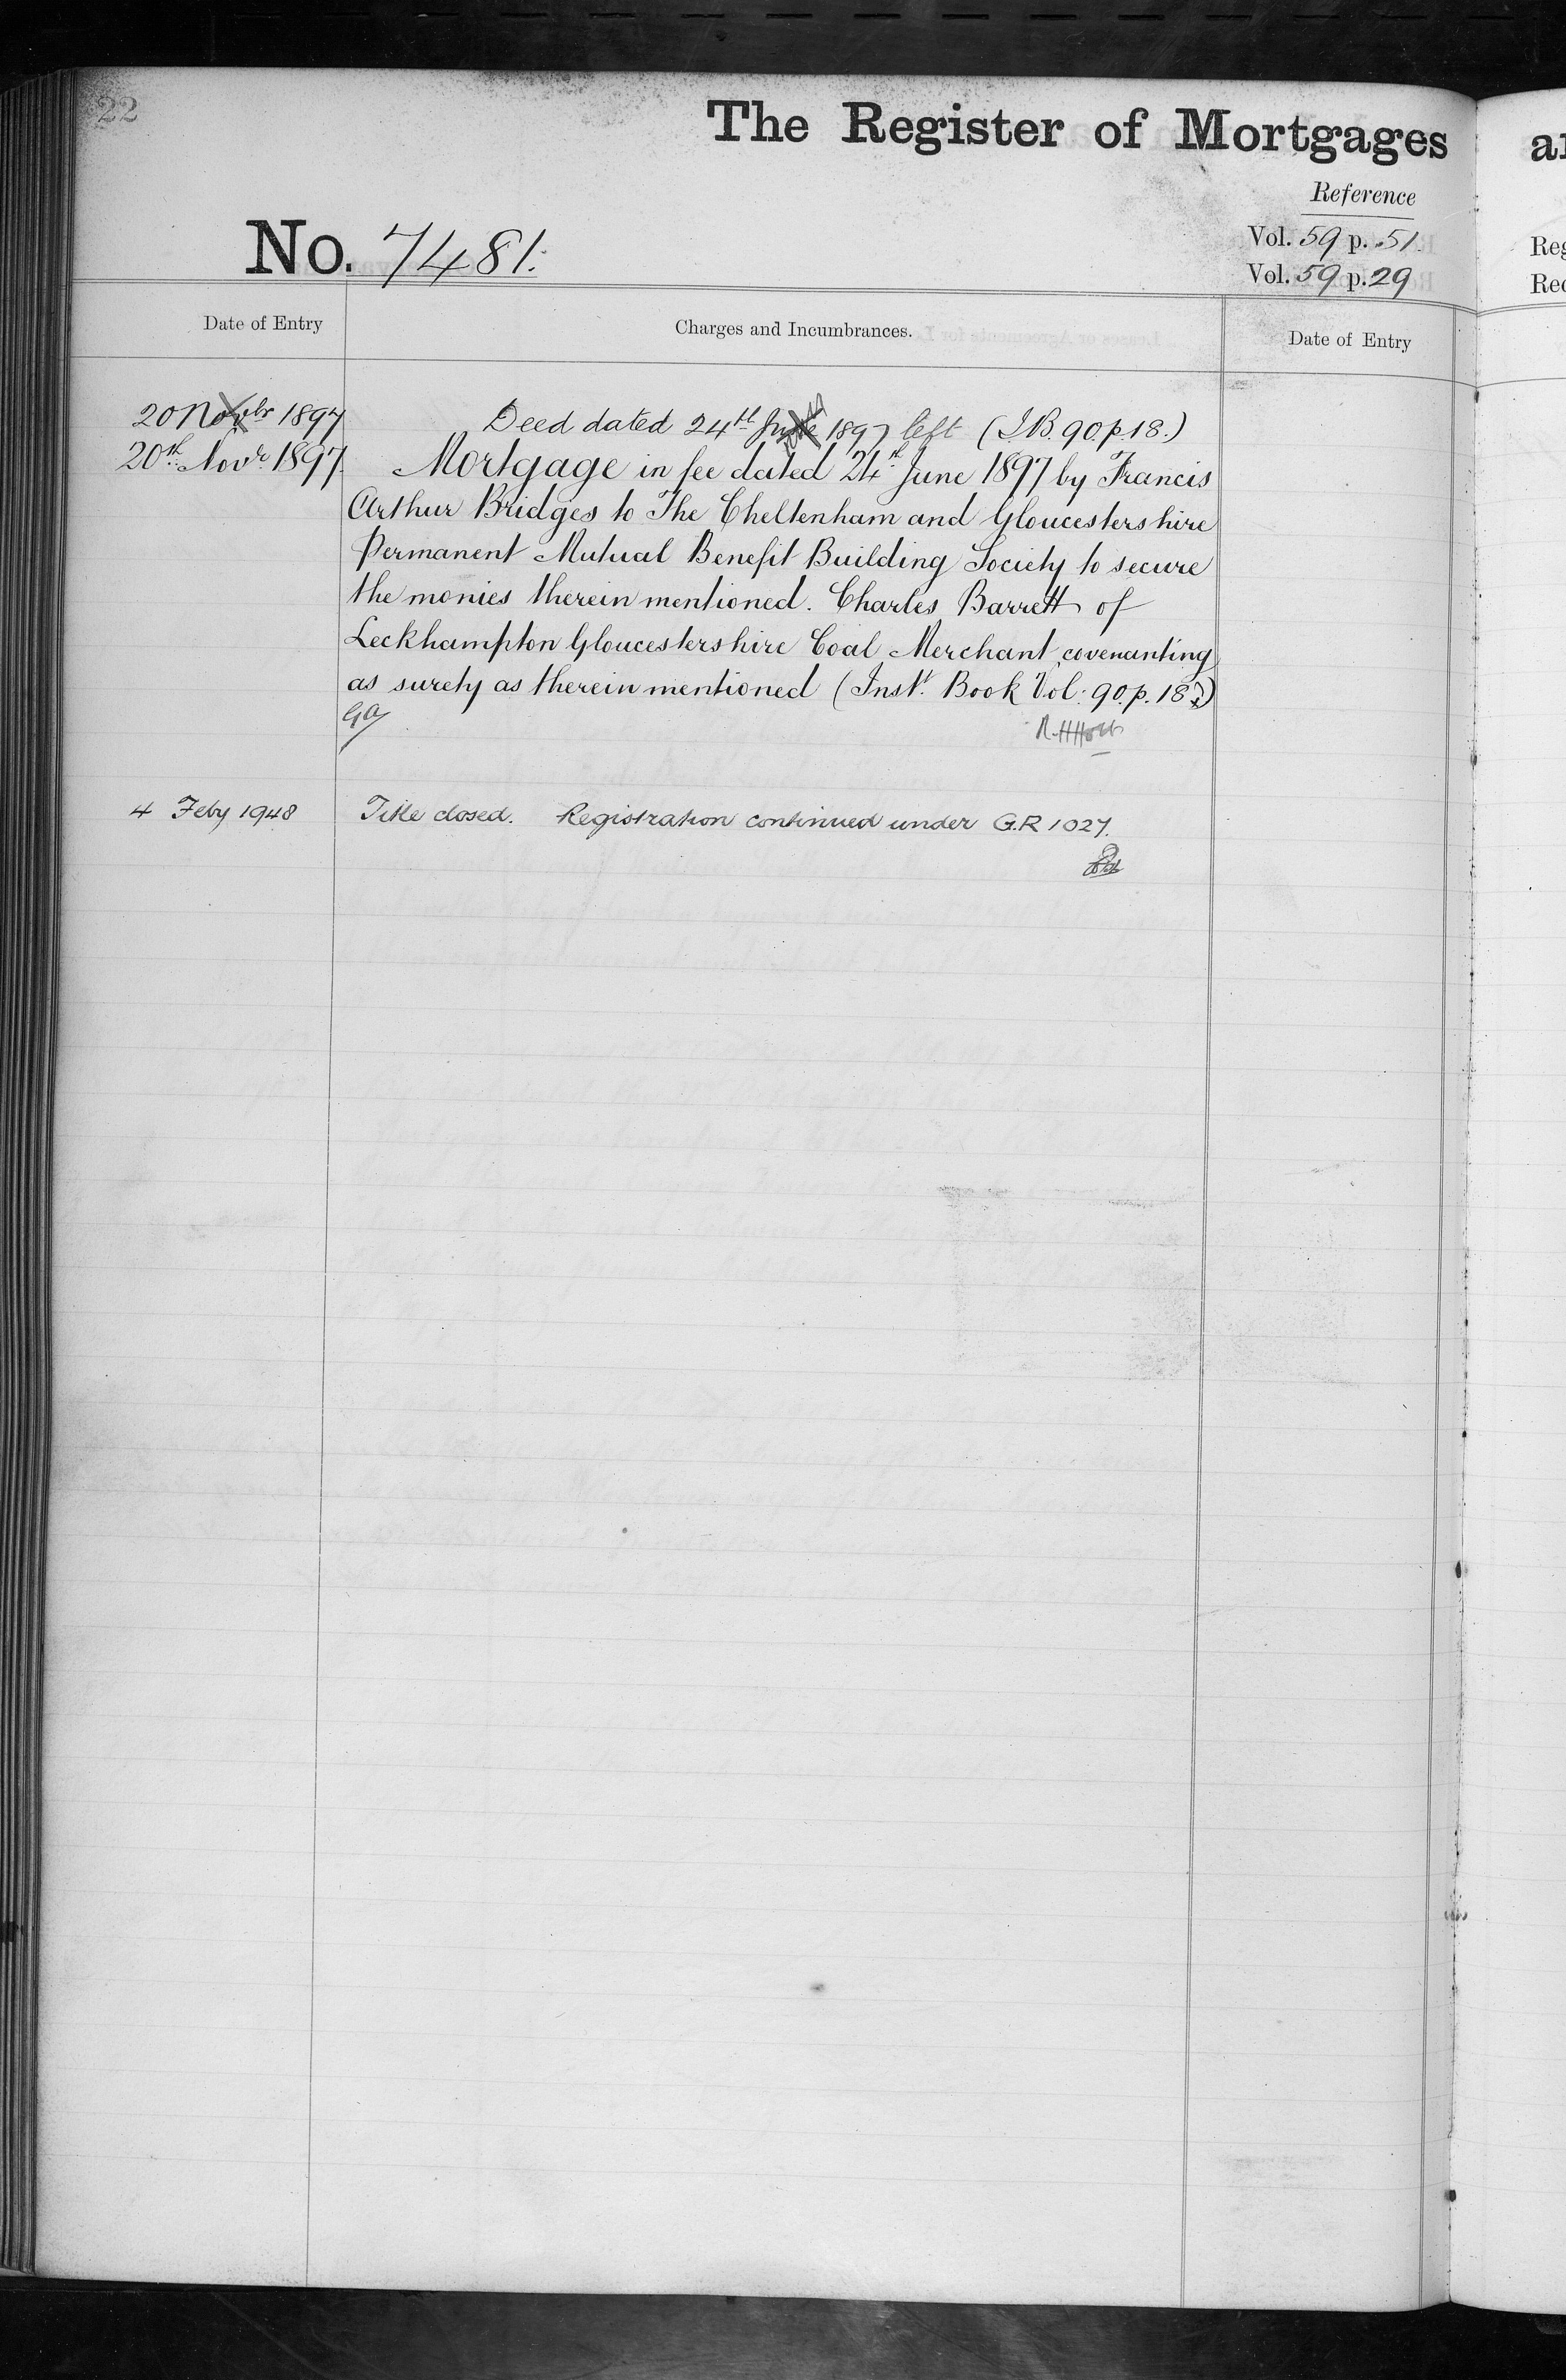 22
The Register of Mortgages
Reference
No. 7481.
Vol. 59 p. 51.
Vol. 59 p. 29
Date of Entry
Charges and Incumbrances.
Date of Entry
20 Novbr 1897
Deed dated 24th June 1897 left (I.B. 90 p 18.)
20th Novr. 1897.
Mortgage in fee dated 24th June 1897 by Francis
Arthur Bridges to The Cheltenham and Gloucestershire
Permanent Mutual Benefit Building Society to secure
the monies therein mentioned. Charles Barrett of
Leckhampton Gloucestershire Coal Merchant covenanting
as surety as therein mentioned (Instt. Book Vol: 90. p. 18.)
4 Feby 1948
Title closed. Registration continued under G.R 1027.